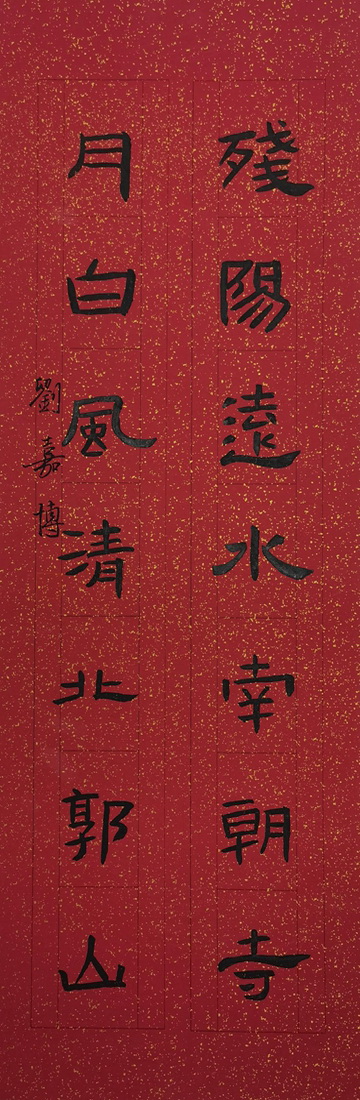 殘陽遠水南朝寺
月白風清北郭山
劉嘉博